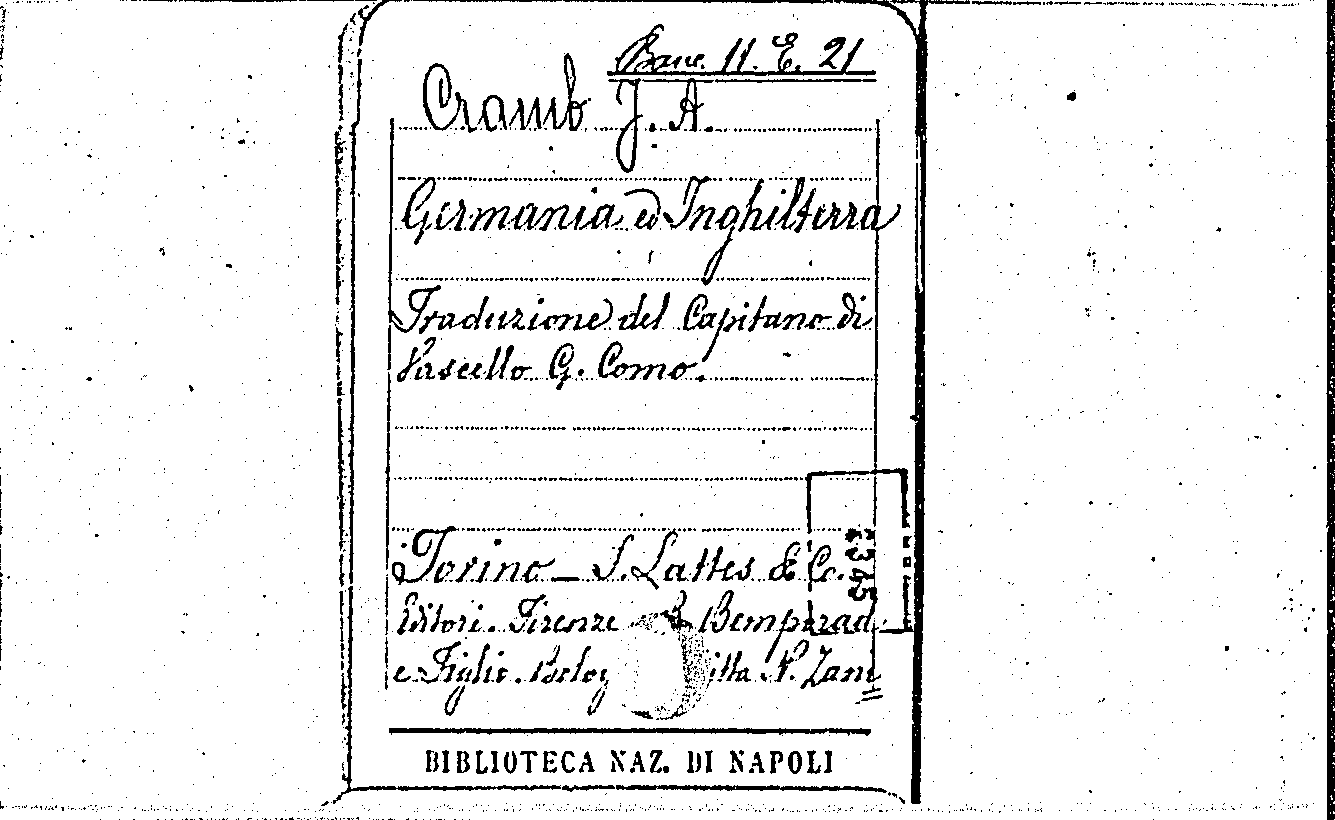 Banc. 11. E. 21
Cramb J. A.
Germania ed Inghilterra
Traduzione del Capitano di
Vascello G. Como.
Torino _ S. Lattes & C.
Editori. Firenze Bemporad
e Figlio. N. Zani
BIBLIOTECA NAZ. DI NAPOLI